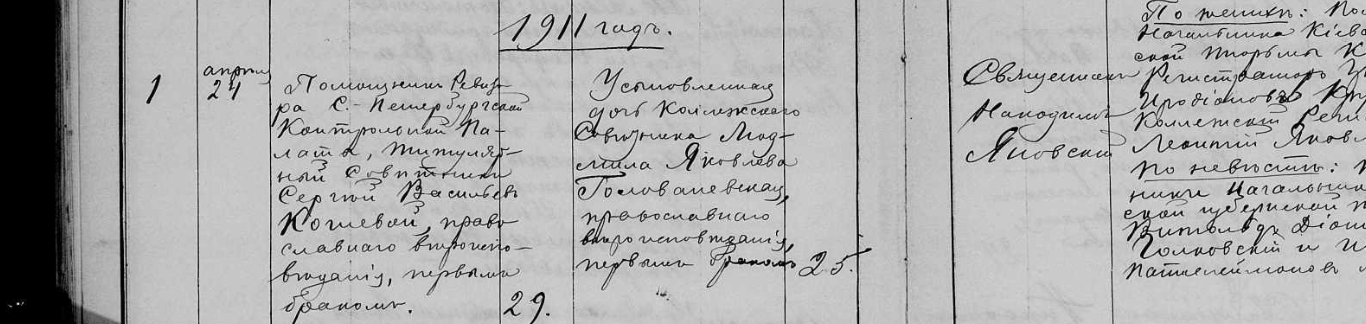 1911 годъ.
1
апрѣля
24
Помощникъ Ревизо-
ра С.-Петербургской
Контрольной Па-
латы, титуляр-
ный Совѣтникъ
Сергѣй Васильевъ
Кошевой, право
славнаго вѣроиспо-
вѣданія, первымъ
бракомъ.
29.
Усыновленная
дочь Коллежскаго
Совѣтника Люд-
мила Яковлева
Голованевская,
православнаго
вѣроисповѣданія,
первымъ бракомъ
25.
Священникъ
Яновскій
По женихѣ:
Кіев
ской тюрьмы К
Регистраторъ
Иродіоновъ
Коллежскій Реги
Леонтій Яковл
По невѣстѣ:
ники Начальник
ской губернской
и